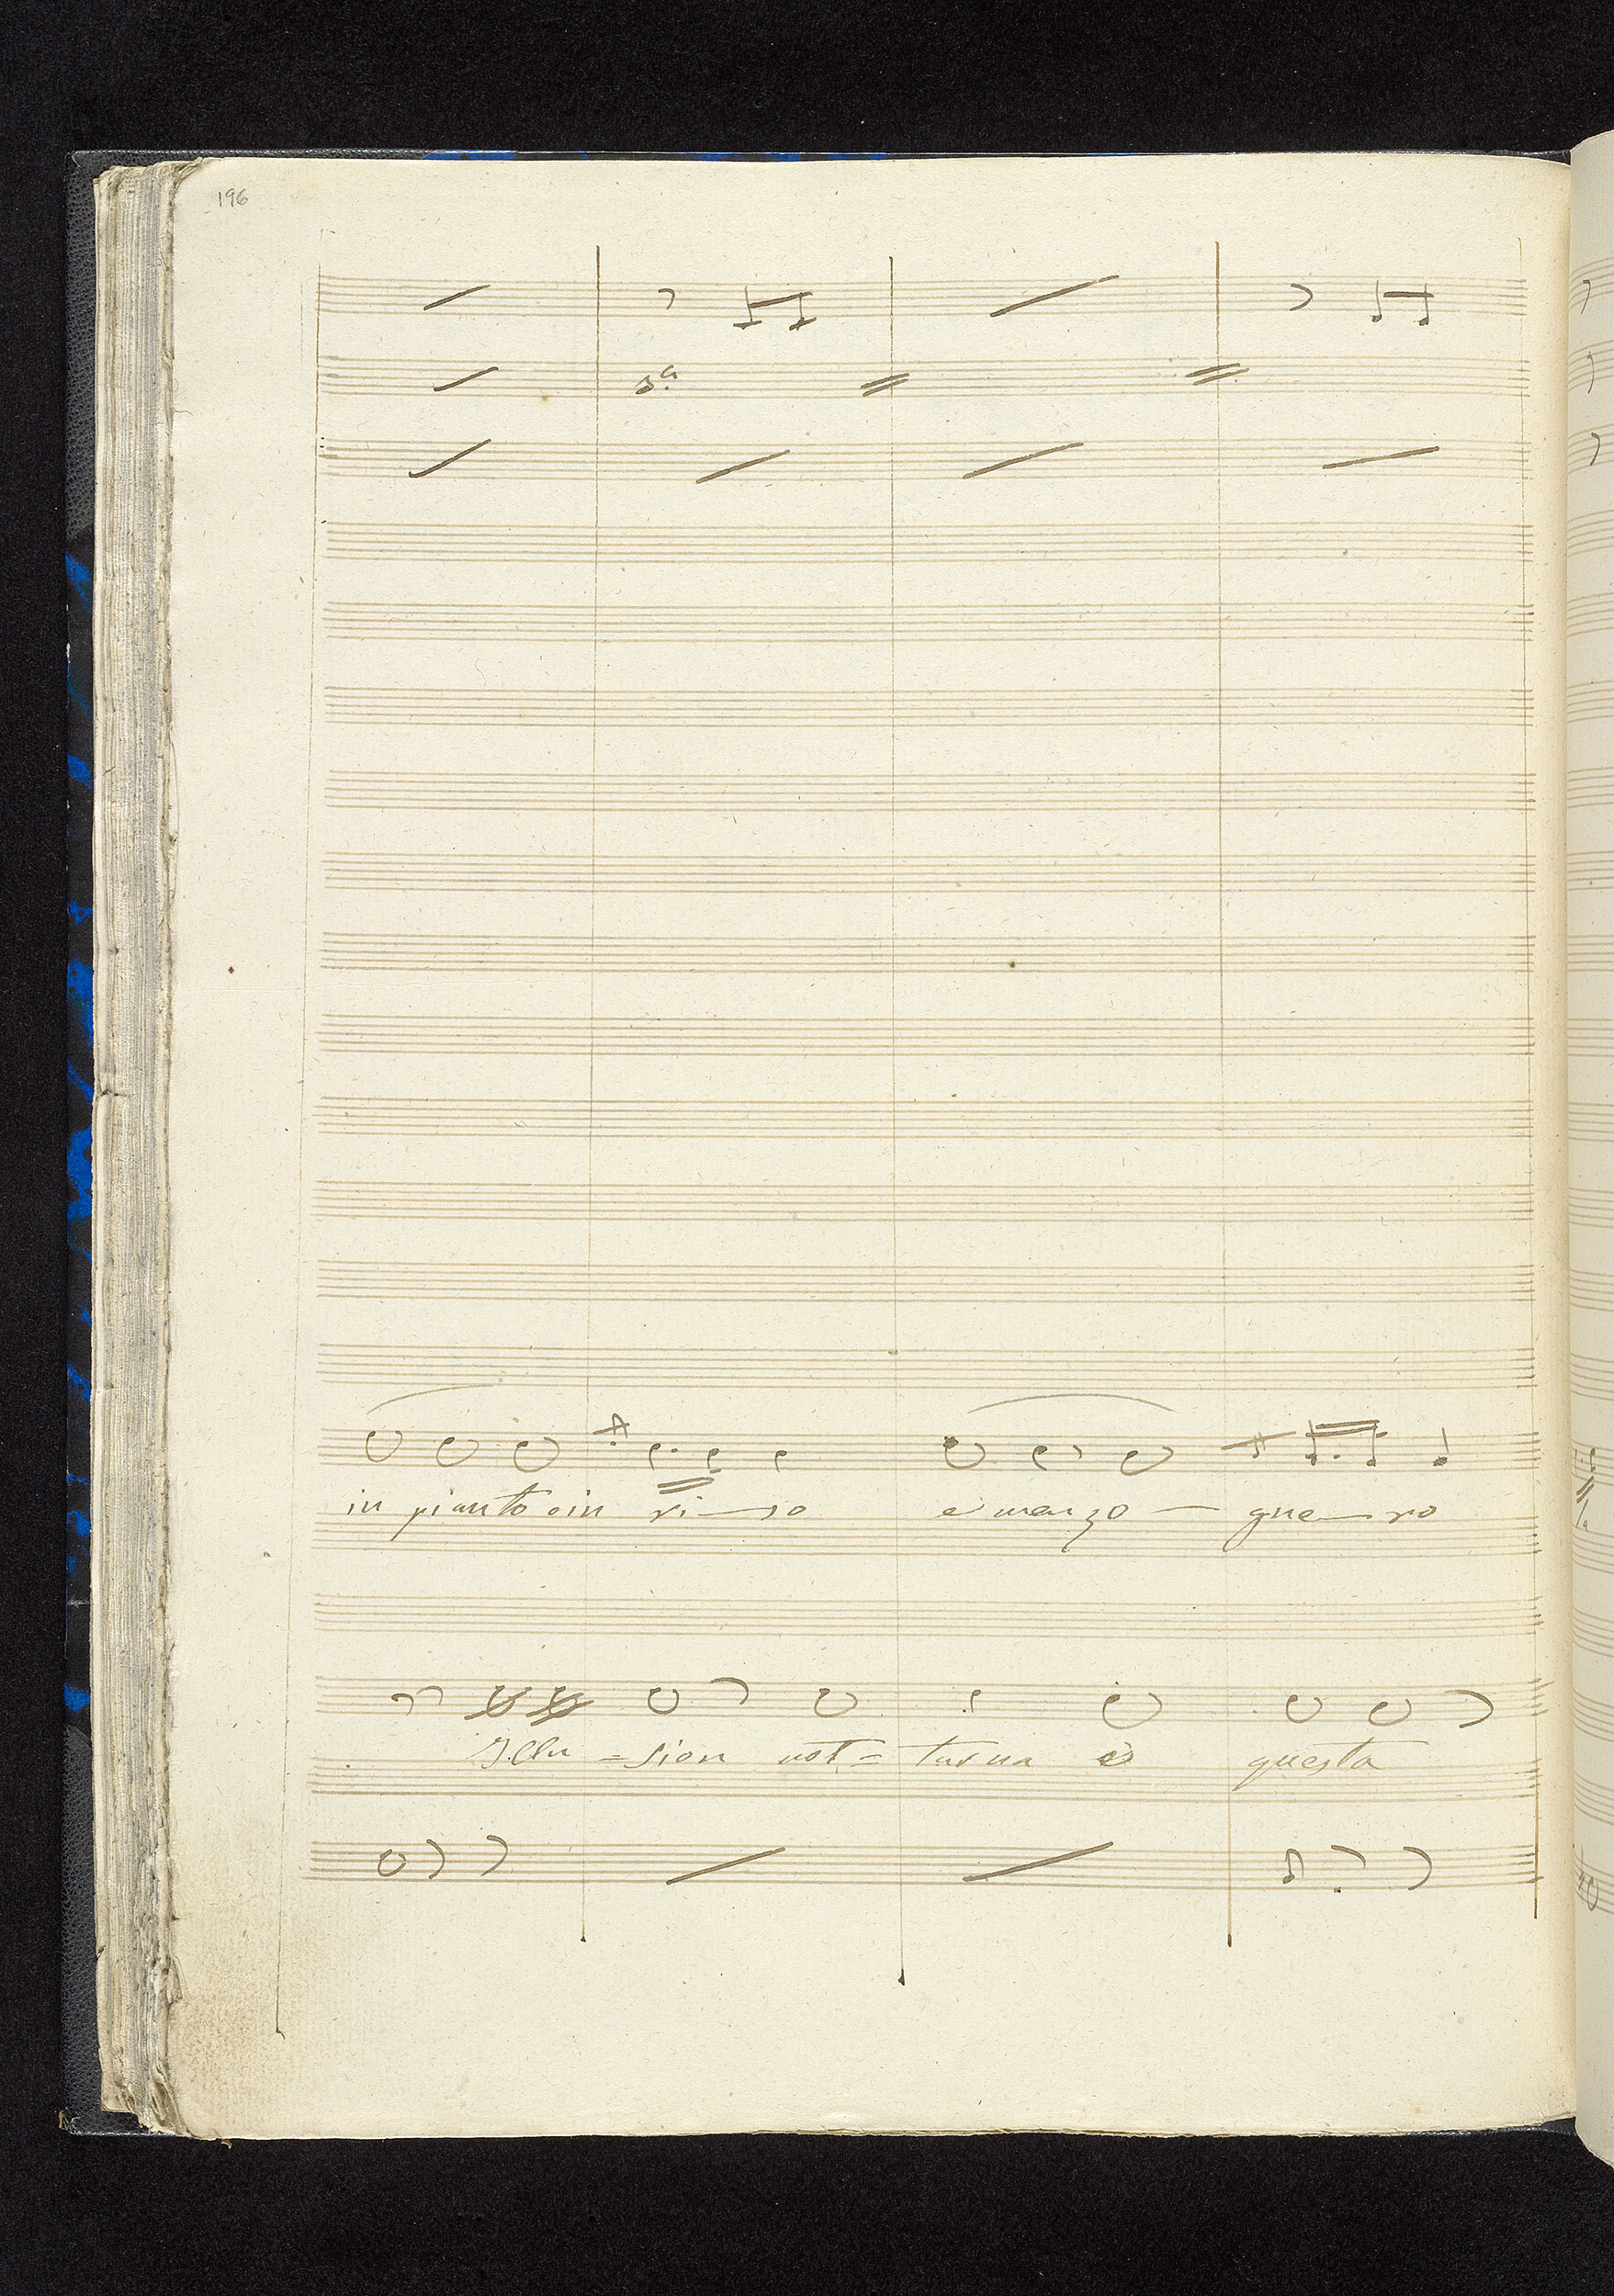 196
8ª
in pianto o in ri—so e menzo — gne—ro
Illu = sion not = turna è questa